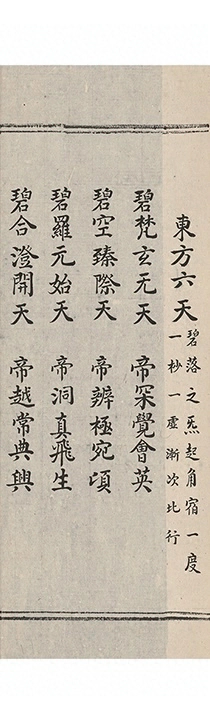 東方六天
碧落之炁起角宿一度
一杪一虛漸次比行
碧梵玄无天　帝罙覺會英
碧空臻際天　帝辨極宛頃
碧羅元始天　帝洞真飛生
碧合澄開天　帝越常典興